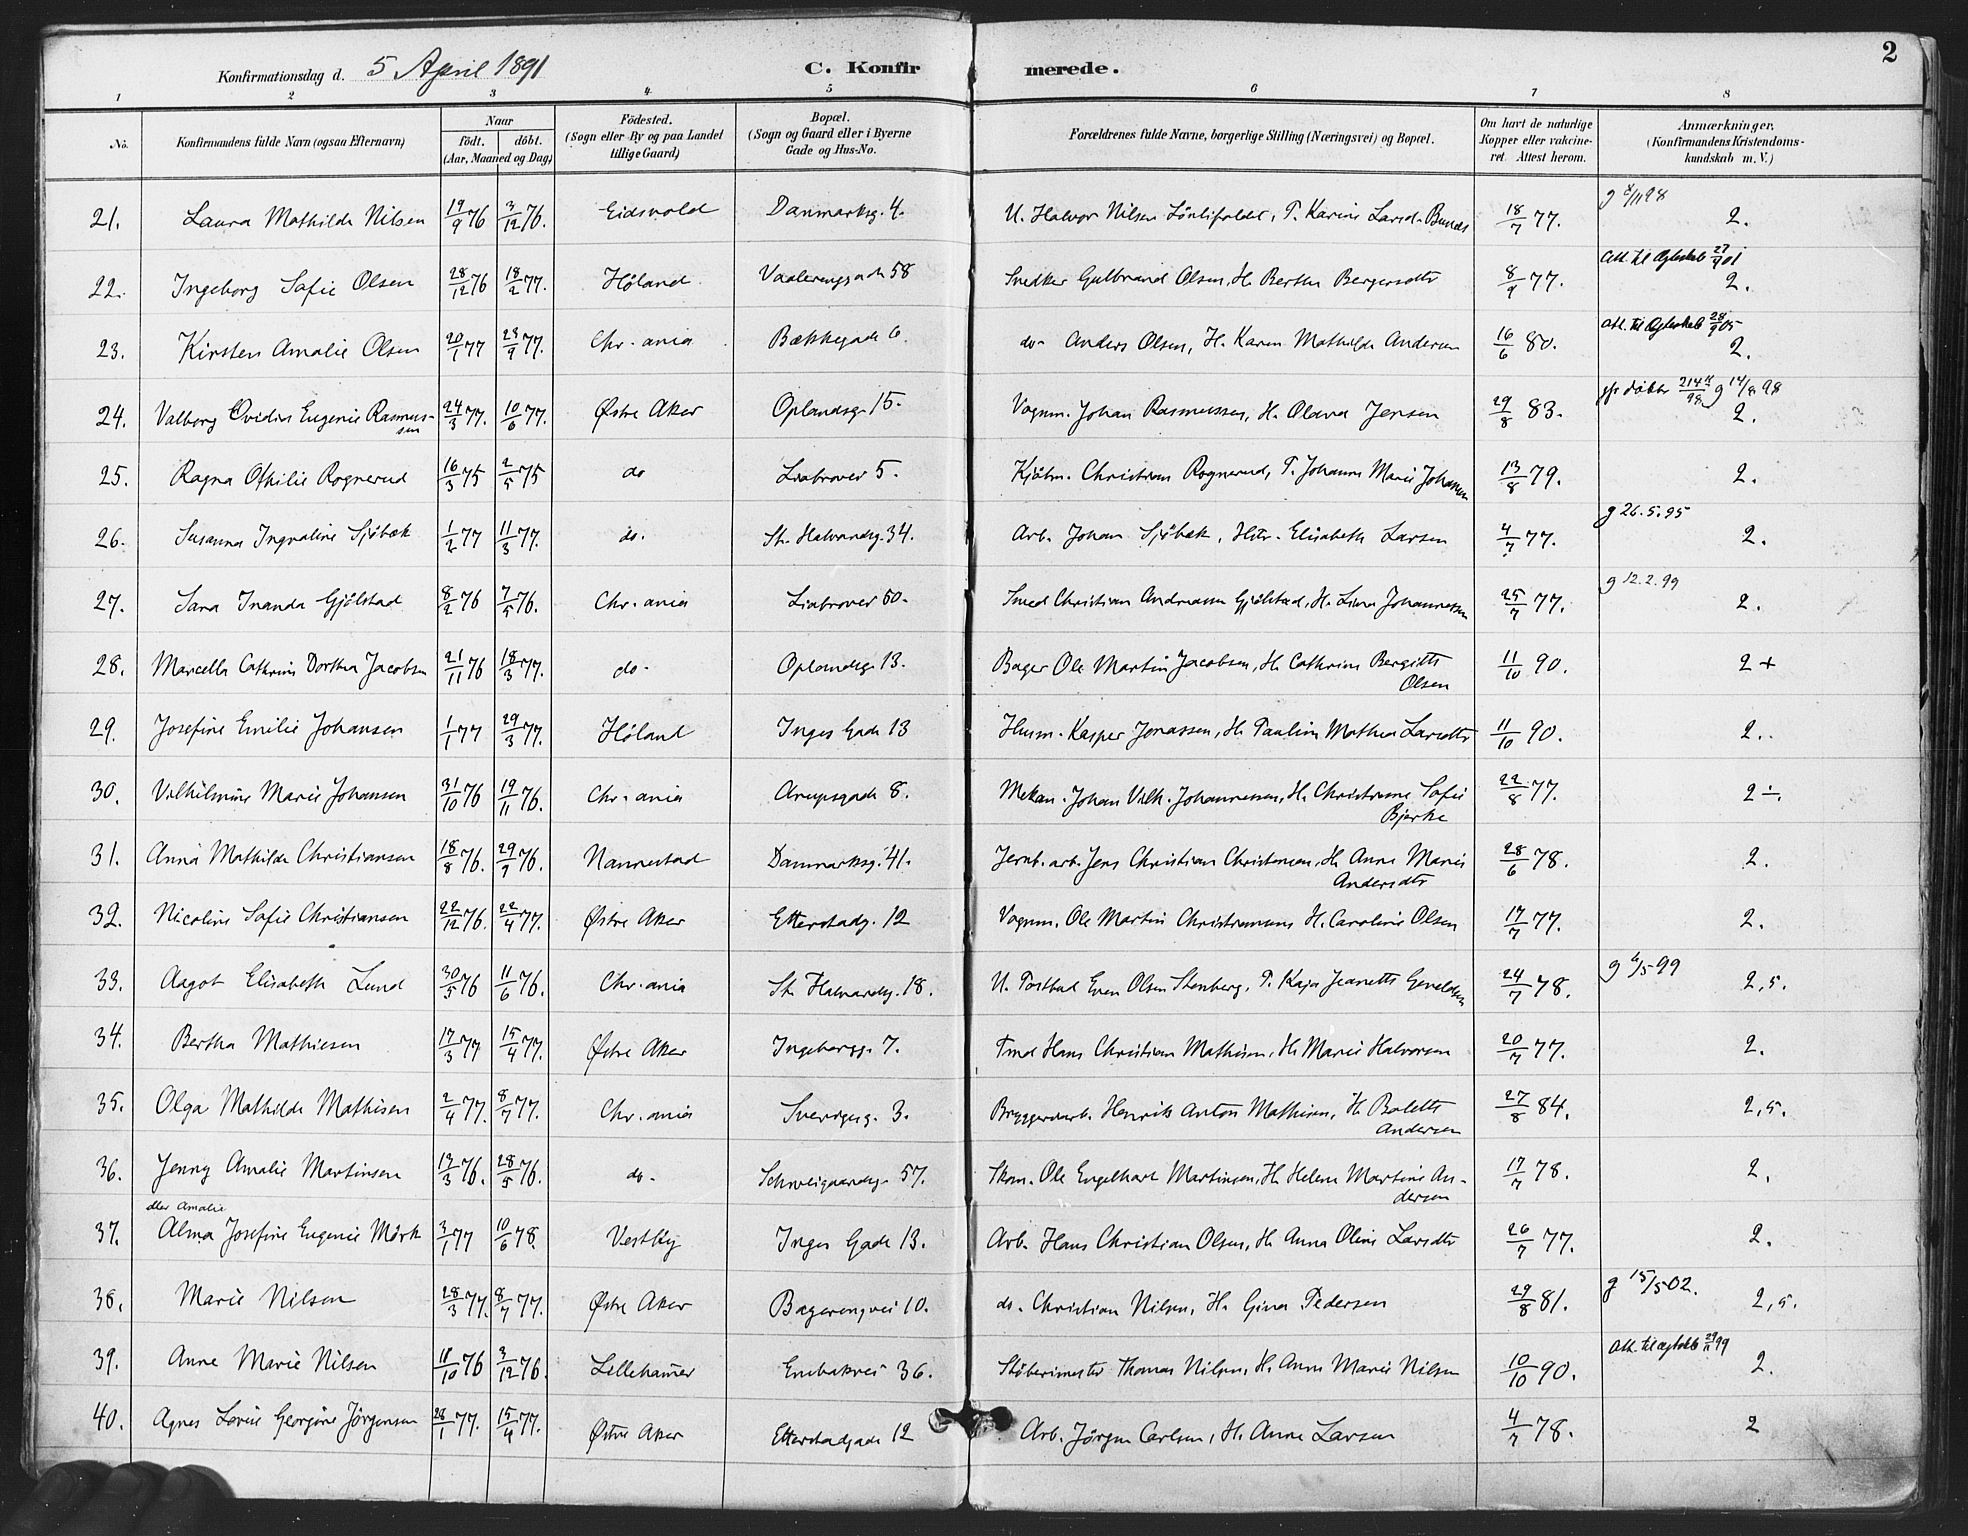 Konfirmationsdag d. 5 April 1891 C. Konfirmerede. 2
1 2 3 4 5 6 7 8
No. Konfirmandens fulde Navn (ogsaa Efternavn) Naar födt. döbt. (Aar, Maaned og Dag) Födested. (Sogn eller By og paa Landet tillige Gaard) Bopæl. (Sogn og Gaard eller i Byerne Gade og Hus-No. Forældrenes fulde Navne, borgerlige Stilling (Næringsvei) og Bopæl. Om havt de naturlige Kopper eller vakcineret. Attest herom. Anmærkninger. (Konfirmandens Kristendomskundskab m. V.)
21. Laura Mathilde Nilsen 19/9 76 3/12 76. Eidsvold Danmarksg. 4. U. Halvor Nilsen, P. Karine Larsd. 18/7 77. 2.
22. Ingeborg Sofie Olsen 28/12 76 18/2 77. Höland Vaalerenggade 58 Snedker Gulbrand Olsen, H. Berthe Bergersdtr 8/9 77. Att. til Ægteskab 2.
23. Kirsten Amalie Olsen 20/1 77 23/9 77. Chr.ania Bækkegade 6. do- Anders Olsen, H. Karen Mathilde Andersen 16/6 80. Att. til Ægteskab 28/9 05 2.
24. Valborg Ovidia Eugenie Rasmussen 24/3 77. 10/6 77. Østre Aker Oplandsg. 15. Vognm. Johan Rasmussen, H. Olava Jensen 29/8 83. g 14/8 98 2.
25. Ragna Othilie Rognerud 16/3 75 2/5 75 do Liabrovei 5. Kjöbm. Christian Rognerud, P. Johanne Marie Johansen 13/8 79. 2.
26. Susanna Ingvaline Sjöbæk 1/2 77 11/3 77. do. St. Halvardsg. 34. Arb. Johan Sjöbæk, Elisabeth Larsen 4/7 77. g 26.5.95 2.
27. Sara Inanda Gjölstad 8/2 76 7/5 76. Chr.ania Liabrovei 60. Smed Christian Andreassen Gjölstad, H. Lina Johannessen 25/7 77. g 12.2.99 2.
28. Marcella Cathrine Dorthea Jacobsen 21/11 76 18/3 77. do- Oplandsg. 13. Bager Ole Martin Jacobsen, H. Cathrine Bergitte Olsen 11/10 90. 2 +
29. Josefine Emilie Johansen 1/1 77 29/3 77. Höland Inges Gade 13 Husm. Kasper Jonassen, H. Pauline Mathea Larsdtr 11/10 90. 2.
30. Vilhelmine Marie Johansen 31/10 76 19/11 76. Chr.ania Arupsgade 8. Mekan. Johan Vilh. Johannessen, H. Christiane Sofie Bjerke 22/8 77. 2 ÷.
31. Anna Mathilde Christiansen 18/8 76. 29/9 76. Nannestad Danmarksg. 41. Jernb. arb. Jens Christian Christensen, H. Anne Marie Andersdtr 28/6 78. 2.
32. Nicoline Sofie Christiansen 22/12 76. 22/4 77. Østre Aker Etterstadg. 12 Vognm. Ole Martin Christiansen, H. Caroline Olsen 17/7 77. 2.
33. Aagot Elisabeth Lund 30/5 76 11/6 76. Chr.ania St. Halvardsg. 18. U. Postbud Even Olsen Stenberg, P. Kaja Jeanette 24/7 78. g 6/5 99 2,5.
34. Bertha Mathiesen 17/3 77 15/4 77. Østre Aker Ingeborgg. 7. Hans Christian Mathisen, H. Marie Halvorsen 20/7 77. 2.
35. Olga Mathilde Mathisen 2/4 77. 8/7 77. Chr.ania Sverigesg. 3. Bryggeriarb. Henrik Anton Mathisen, H. Bolette Andersen 27/8 84. 2,5.
36. Jenny Amalie Martinsen 13/3 76. 28/5 76. do. Schweigaardsg. 57. Skom. Ole Engelhart Martinsen, H. Helene Martine Andersen 17/7 78. 2.
eller Amalie
37. Alma Josefine Eugenie Mörk 3/1 77 10/6 78. Vestby Inges Gade 13. Arb. Hans Christian Olsen, H. Anna Oline Larsdtr 26/7 77. 2.
38. Marie Nilsen 28/3 77. 8/7 77. Østre Aker Bøgerengvei 10. do. Christian Nilsen, H. Gina Pedersen 29/8 81. g 15/5 02. 2,5.
39. Anne Marie Nilsen 11/10 76 3/12 76. Lillehamer Enebakvei 36. Støberimester Thomas Nilsen, H. Anne Marie Nilsen 10/10 90. Att. til ægtesk. 2.
40. Agnes Lovise Georgine Jörgensen 28/1 77. 15/4 77. Østre Aker Etterstadgade 12 Arb. Jörgen Carlsen, H. Anne Larsen 4/7 78. 2